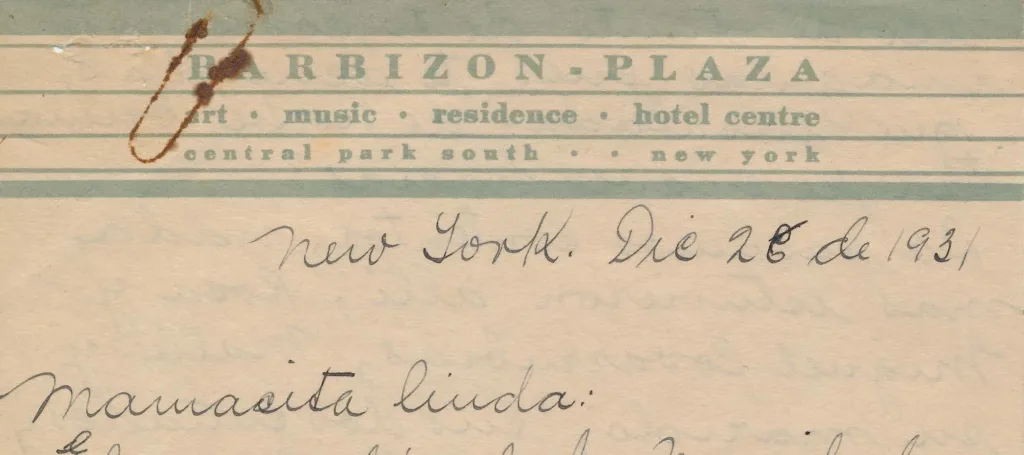 BARBIZON - PLAZA
art · music · residence · hotel centre
central park south · · new york
New York. Dic 26 de 1931
Mamacita linda: